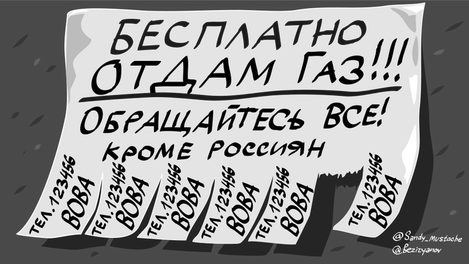 БЕСПЛАТНО
ОТДАМ ГАЗ!!!
ОБРАЩАЙТЕСЬ ВСЕ!
КРОМЕ РОССИЯН
ТЕЛ. 123456
ВОВА
ТЕЛ. 123456
ВОВА
ТЕЛ. 123456
ВОВА
ТЕЛ. 123456
ВОВА
ТЕЛ. 123456
ВОВА
ТЕЛ. 123456
ВОВА
@Sandy_mustache
@Bezizyanov